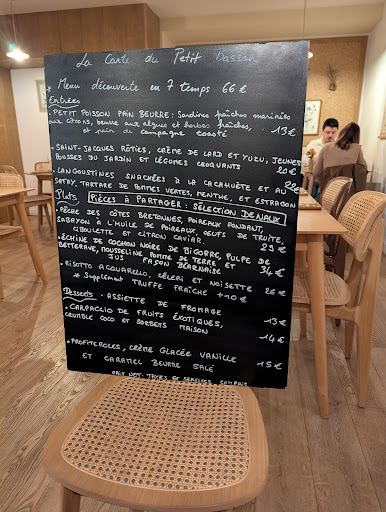 La Carte du Petit Dassan
* Menu découverte en 7 temps 66 €
Entrées
• PETIT POISSON PAIN BEURRE: Sardines fraîches marinées
aux citrons, beurre aux algues et herbes fraîches,
et pain de campagne toasté 13 €
• SAINT-JACQUES RÔTIES, CRÈME DE LARD ET YUZU, JEUNES
POUSSES DU JARDIN ET LÉGUMES CROQUANTS 20 €
• LANGOUSTINES SNACKÉES À LA CACAHUÈTE ET AU
SATAY, TARTARE DE POMMES VERTES, MENTHE, ET ESTRAGON 22
Plats PIÈCES À PARTAGER: SÉLECTION DENAUX
• PÊCHE DES CÔTES BRETONNES, POIREAUX FONDANT,
SABAYON À L'HUILE DE POIREAUX, OEUFS DE TRUITE,
CIBOULETTE ET CITRON CAVIAR. 29 €
• ÉCHINE DE COCHON NOIRE DE BIGORRE, PULPE DE
BETTERAVE, MOUSSELINE POMME DE TERRE ET
JUS FAÇON BÉARNAISE 34 €
• RISOTTO ACQUARELLO, CÉLERI ET NOISETTE 26 €
* Supplément TRUFFE FRAÎCHE +10 €
Desserts • ASSIETTE DE FROMAGE 13 €
• CARPACCIO DE FRUITS ÉXOTIQUES,
CRUMBLE COCO ET SORBETS MAISON 14 €
• PROFITEROLES, CRÈME GLACÉE VANILLE
ET CARAMEL BEURRE SALÉ 15 €
PRIX NET. TAXES ET SERVICES COMPRIS